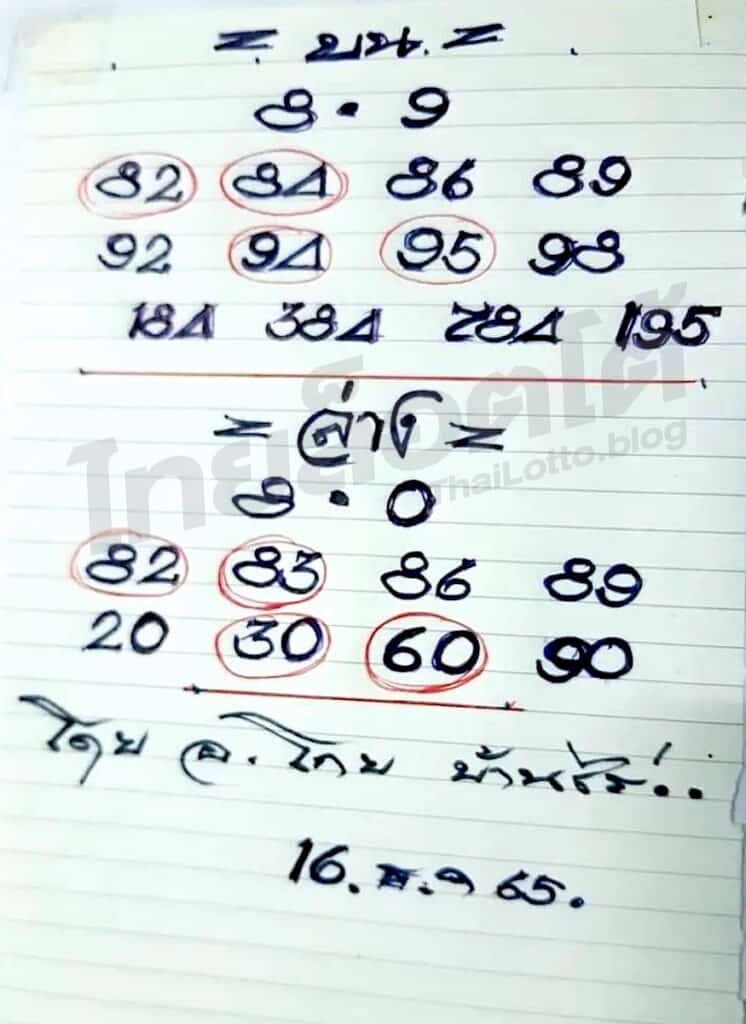 = บน. =
8 · 9
82 84 86 89
92 94 95 98
184 384 784 195
= ล่าง =
ไทยล็อตโต้
ThaiLotto.blog
8 · 0
82 83 86 89
20 30 60 90
โดย อ. โทย บ้านไร่..
16. ธ.ค 65.